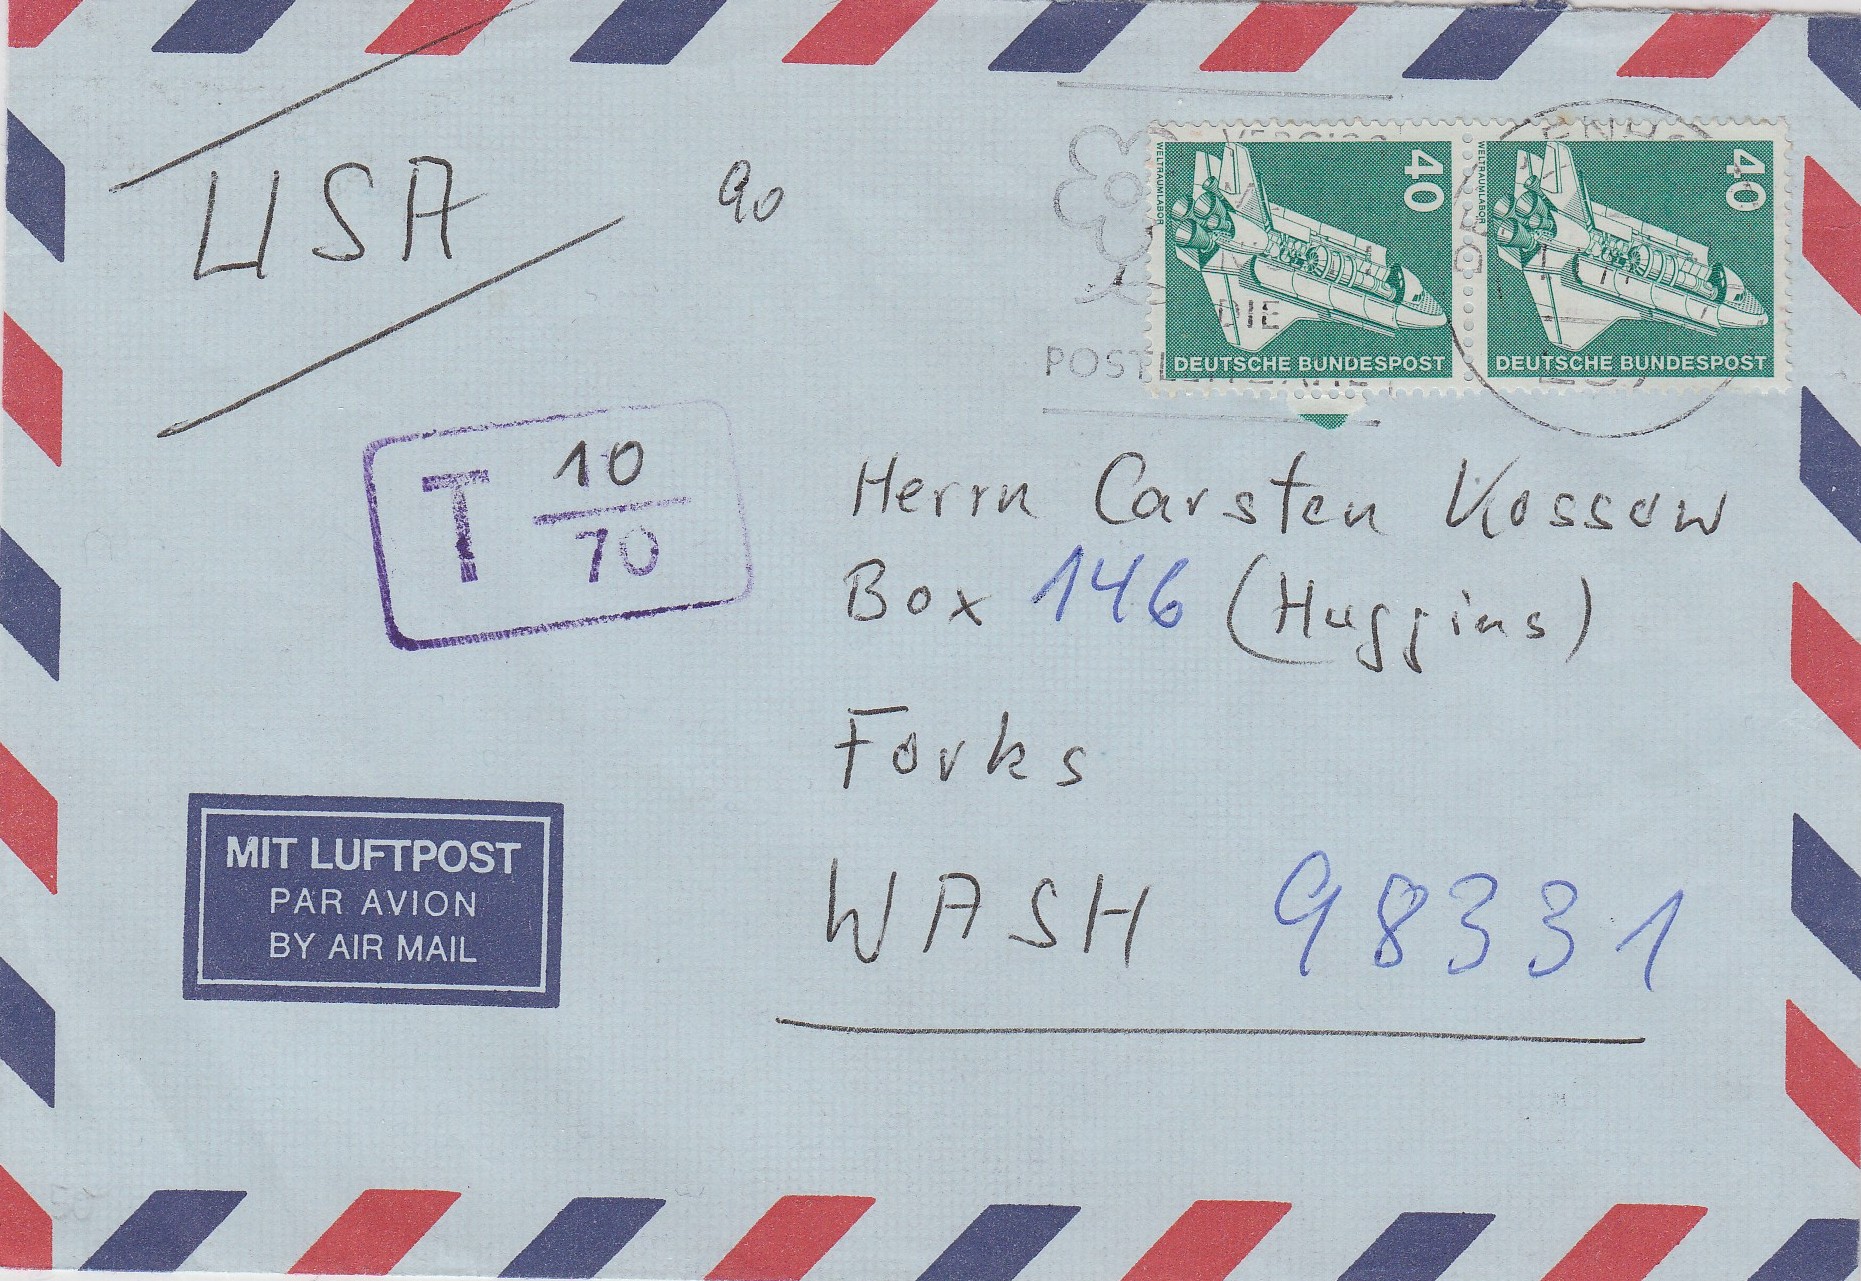 USA
90
WELTRAUMLABOR
40
DEUTSCHE BUNDESPOST
WELTRAUMLABOR
40
DEUTSCHE BUNDESPOST
DIE
T 10
70
Herrn Carsten Kossow
Box 146 (Huggins)
Forks
WASH 98331
MIT LUFTPOST
PAR AVION
BY AIR MAIL